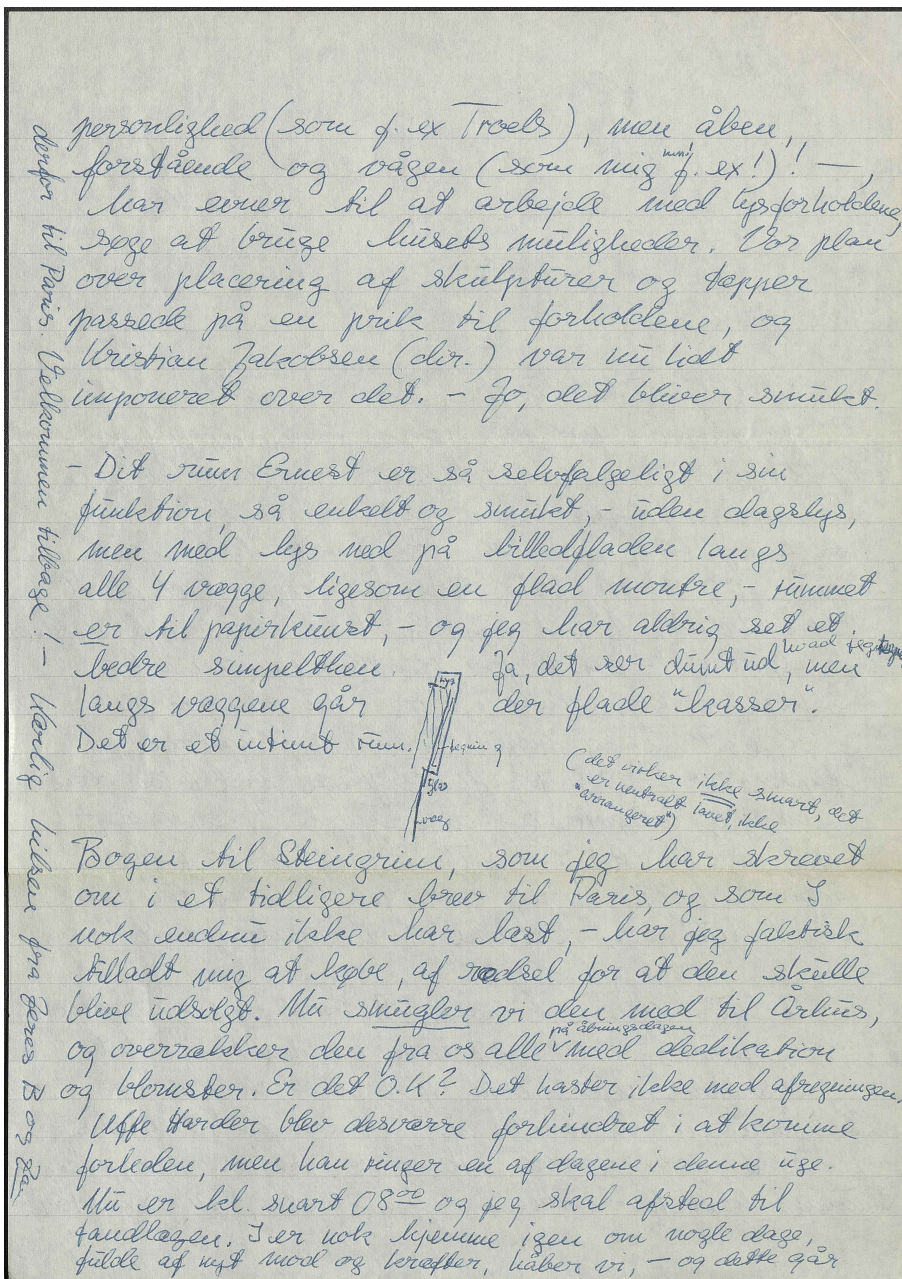 personlighed (som f. ex Troels), men åben,
forstående og vågen (som mig f. ex!)! —,
har evner til at arbejde med lysforholdene,
søge at bruge husets muligheder. Vor plan
over placering af skulpturer og tæpper
passede på en prik til forholdene, og
Kristian Jakobsen (dir.) var nu lidt
imponeret over det. - Jo, det bliver smukt.
- Dit rum Ernest er så selvfølgeligt i sin
funktion, så enkelt og smukt, - uden dagslys,
men med lys ned på billedfladen langs
alle 4 vægge, ligesom en flad montre, - rummet
er til papirkunst, - og jeg har aldrig set et
bedre simpelthen. Ja, det ser dumt ud, hvad jeg men
langs væggene går der flade "kasser".
Det er et intimt rum.
lys
tegning
glas
væg
(det virker ikke smart, det
er neutralt lavet, ikke
"arrangeret")
Bogen til Steingrim, som jeg har skrevet
om i et tidligere brev til Paris, og som I
nok endnu ikke har læst, - har jeg faktisk
tilladt mig at købe, af rædsel for at den skulle
blive udsolgt. Nu smugler vi den med til Århus,
og overrækker den fra os alle på åbningsdagen med dedikation
og blomster. Er det O.K? Det haster ikke med afregningen.
Uffe Harder blev desværre forhindret i at komme
forleden, men han ringer en af dagene i denne uge.
Nu er kl. snart 08⁰⁰ og jeg skal afsted til
tandlægen. I er nok hjemme igen om nogle dage,
fulde af nyt mod og kræfter, håber vi, - og dette går
derfor til Paris. Velkommen tilbage! - Kærlig hilsen fra Jeres B og